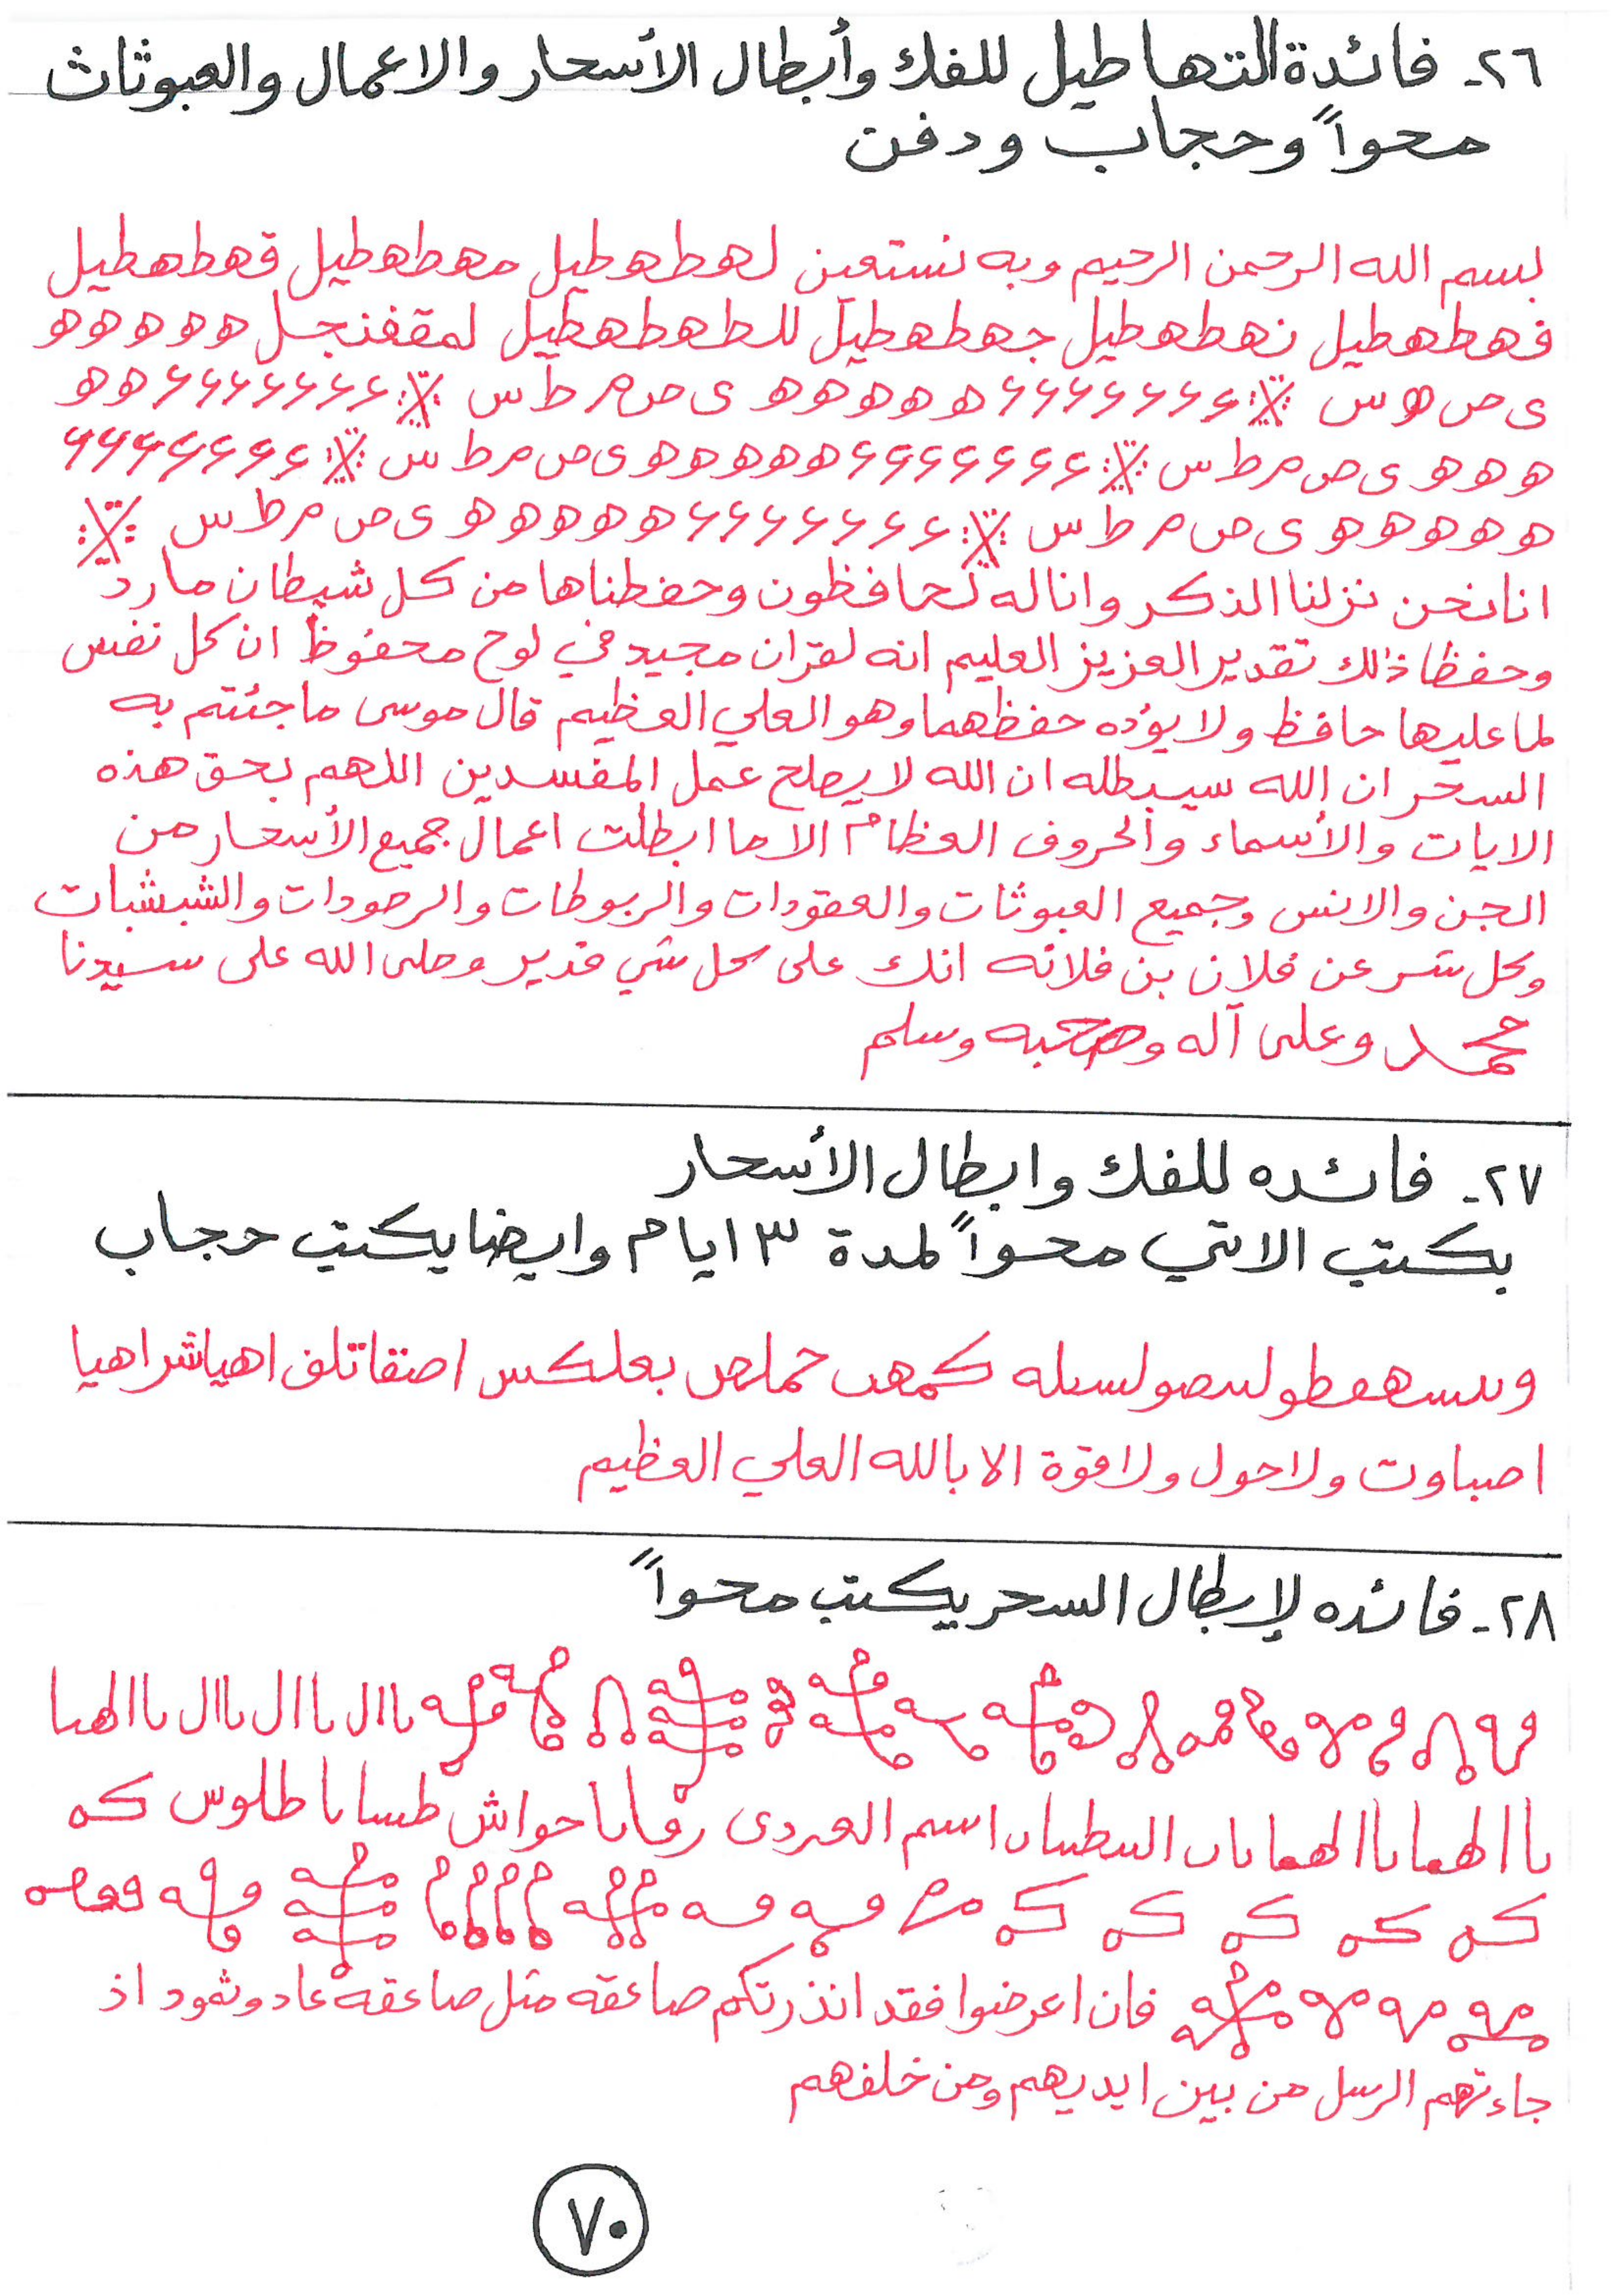 ٢٦- فائدة التهاطيل للفك وأبطال الأسحار والاعمال والعبوثاث
محواً وحجاب ودفن
بسم الله الرحمن الرحيم وبه نستعين لهطهطيل مهطهطيل قهطهطيل
فهطهطيل نهطهطيل جهطهطيل للطهطهطيل لمقفنجل ه ه ه ه ه
ى ص س ء ء ء ء ء ء ء ه ه ه ه ه ى ص م ط س ء ء ء ء ء ء ء ه ه
ه ه ه ى ص م ط س ء ء ء ء ء ء ء ه ه ه ه ه ى ص م ط س ء ء ء ء ء ء ء
ه ه ه ه ه ى ص م ط س ء ء ء ء ء ء ء ه ه ه ه ه ى ص م ط س
انا نحن نزلنا الذكر وانا له لحافظون وحفطناها من كل شيطان مارد
وحفظا ذلك تقدير العزيز العليم انه لقران مجيد في لوح محفوظ ان كل نفس
لما عليها حافظ ولا يؤده حفظهما وهو العلي العظيم قال موسى ما جئتم به
السحر ان الله سيبطله ان الله لا يصلح عمل المفسدين اللهم بحق هذه
الايات والأسماء والحروف العظام الا ما ابطلت اعمال جميع الأسحار من
الجن والانس وجميع العبوثات والعقودات والربوطات والرصودات والشبشبات
وكل شر عن فلان بن فلانه انك على كل شي قدير وصلى الله على سيدنا
محمد وعلى آله وصحبه وسلم
٢٧- فائده للفك وابطال الأسحار
يكتب الاتي محواً لمدة ٣ ايام وايضا يكتب حجاب
بعلكس اصنقاتلف اهياشراهيا
اصباوت ولا حول ولا قوة الا بالله العلي العظيم
٢٨- فائده لإبطال السحر يكتب محواً
اسم طلوس
فان اعرضوا فقد انذرتكم صاعقه مثل صاعقه عاد وثمود اذ
جاءتهم الرسل من بين ايديهم ومن خلفهم
٧٠